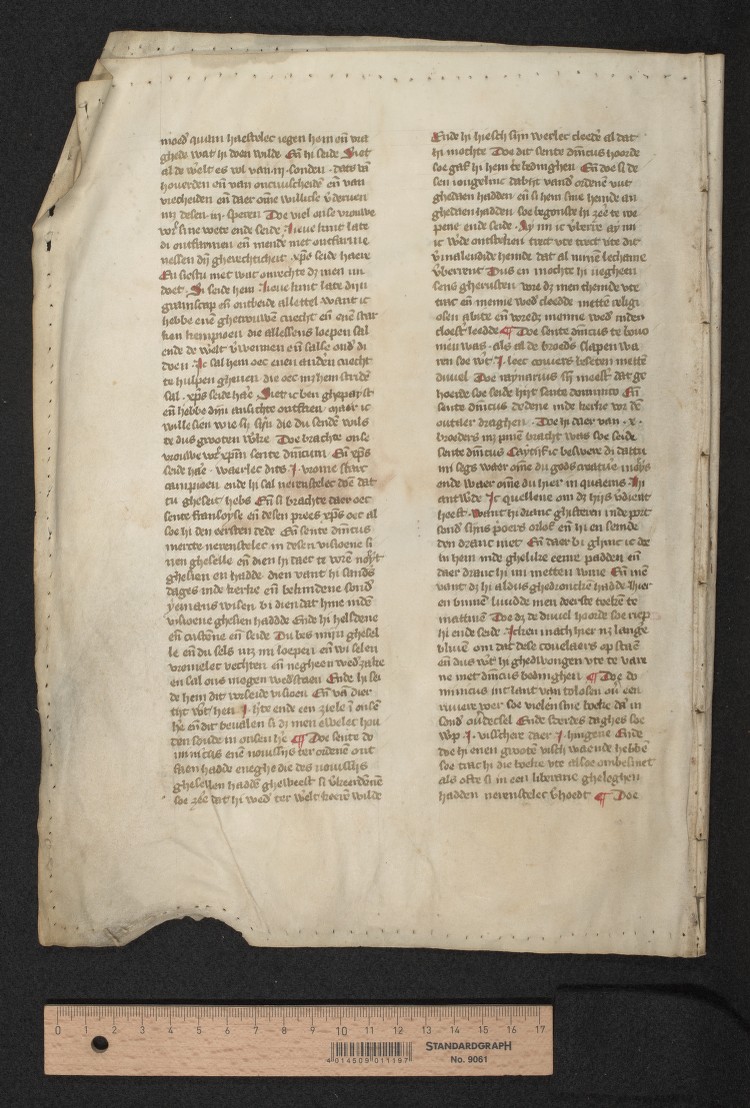 moeder quam haestelec ieghen hem en̄ vra
ghede wat hi doen wilde En̄ hi seide Siet
al de werelt es vol van .iij. sonden . dats van
houerden en̄ van oncuuscheden en̄ van
vrecheiden en̄ daer ome willicse verderuen
mz desen .iij. speren Doe viel onse vrouwe
vor sine voete ende seide Lieue kint late
di ontfarmen en̄ mende met ontfarme
nessen dijn gherechticheit . xps seide haere
En siestu niet wat onrechte dz men mi
doet . Si seide hem Lieue kint late dijn
gramscap en̄ ontbeide allettel want ic
hebbe enen ghetrouwen cnecht en̄ enen star
ken kempioen die allessens loepen sal
ende de werelt verwinnen en̄ salse onder di
doen Ic sal hem oec enen anderen cnecht
te hulpen gheuen die oec mz hem striden
sal . xps seide haer Siet ic ben ghepayst
en̄ hebbe dijn ansichte ontfaen maer ic
wille sien wie si sijn die du senden wils
te dus groten werke Doe brachte onse
vrouwe vor xpm sente dm̄icum En̄ xps
seide haer . waerlec dits .i. vrome starc
campioen ende hi sal nerenstelec doen dat
tu gheseit hebs En̄ si brachte daer oec
sente fransoyse en̄ desen prees xps oec al
soe hi den eersten dede En̄ sente dm̄icus
mercte nerenstelec in desen visioene si
nen gheselle en̄ dien hi daer te voren noyt
ghesien en hadde . dien vant hi sanders
dages inde kerke en̄ bekindene sonder
yemans wisen bi dien dat hine inden
visioene ghesien haddde Ende hi helsdene
en̄ custene en̄ seide Du bes mijn ghesel
le en̄ du sels mz mi loepen en̄ wi selen
vromelec vechten en̄ negheen wedersake
en sal ons mogen wederstaen Ende hi sei
de hem dit vorseide visioen En̄ van dier
tijt vort hen .i. herte ende een ziele in onsen
here en̄ dit beualen si dz men ewelec hou
den soude in onsen here ¶ Doe sente do
minicus enen nouissijs ter ordenen ont
faen hadde eneghe die des nouissijs
ghesellen hadden gheweest si verkerdene
soe zere dat hi weder ter werelt keren wilde
Ende hi hiesch sijn werlec cleeder al dat
hi mochte Doe dit sente dm̄icus hoorde
soe gaf hi hem te bedinghen En̄ doe si de
sen iongeline dabijt vander ordenen wt
ghedaen hadden en̄ si hem sine hemde an
ghedaen hadden soe begonste hi zere te roe
pene ende seide . Ay mi ic verberne ay mi
ic werde ontsteken trect vte trect vte dit
vermalendide hemde dat al minen lechame
verberrent Dus en mochte hi negheen
sens gherusten vore dz men themde vte
trac en̄ menne weder cleedde metten religi
osen abite en̄ vore dz menne weder inden
cloester leedde ¶ Doe sente dm̄icus te bono
nieu was . als al de broeders slapen wa
ren soe wert .i. leec conuers beseten metten
duuel Doe raynarius sijn meester dat ge
hoerde soe seide hijt sente dominico En̄
sente dm̄icus dedene inde kerke vor den
outaer draghen . Doe hi daer van .x.
broeders mz pinen bracht was soe seide
sente dm̄icus Caytijf ic beswere di dattu
mi segs waer ome du gods creature moeys
onde waer ome du hier in quaems . Hi
antwerde Ic quellene om dz hijs verdient
heeft . want hi dranc ghisteren inde port
sonder sijns priors orlof en̄ hi en seinde
den dranc niet En̄ daer bi ghinc ic doe
in hem inde ghelike eenre padden en̄
daer dranc hi mi metten wine En̄ men
vant dz hi aldus ghedroncken hadde . hier
en binnen luudde men deerste teeken te
mattinen Doe dz de duuel hoorde soe riep
hi ende seide . Icken mach hier nz langer
bliuen om dat dese couelaers op staen
en̄ dus wert hi ghedwongen vte te vare
ne met dm̄icus bedinghen ¶ Doe do
minicus int lant van tolosen ouer een
riuiere voer soe vielen sine boeke daer in
sonder oudecsel Ende seerdes daghes soe
werp .i. visschere daer .i. hingene Ende
doe hi enen groten visch waende hebben
soe trac hi die boeke vte also ombesmet
als ofte si in een librarie gheleghen
hadden nerenstelec verhoedt ¶ Doe
0 1 2 3 4 5 6 7 8 9 10 11 12 13 14 15 16 17
4 014509 011197
STANDARDGRAPH
No. 9061